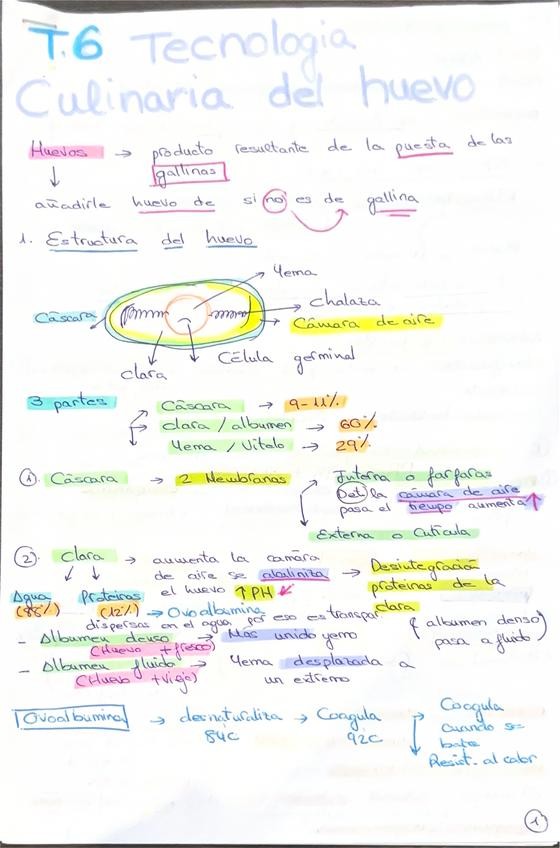 T.6 Tecnologia
Culinaria del huevo
Huevos → producto resultante de la puesta de las
gallinas
↓
añadirle huevo de si no es de gallina
1. Estructura del huevo
Yema
Chalaza
Cáscara
Cámara de aire
Célula germinal
clara
3 partes
Cáscara → 9-11%
clara / albumen → 60%
Yema / Vitelo → 29%
① Cáscara → 2 Membranas
Interna o farfaras
la cámara de aire
pasa el tiempo aumenta ↑
Externa o Cutícula
② Clara → aumenta la camara
de aire se alcaliniza → Desintegración
el huevo ↑PH
proteinas de la
clara
Agua Proteinas
(88%) (12%) → Ovoalbumina
dispersas en el agua, por eso es transpar
(albumen denso
pasa a fluido)
- Albumen denso → Mas unido yema
(Huevo + fresco)
- Albumen fluido → Yema desplazada a
(Huevo + viejo) un extremo
Ovoalbumina → desnaturaliza → Coagula
84C 92C
Coagula
cuando se
bate
Resist. al calor
1